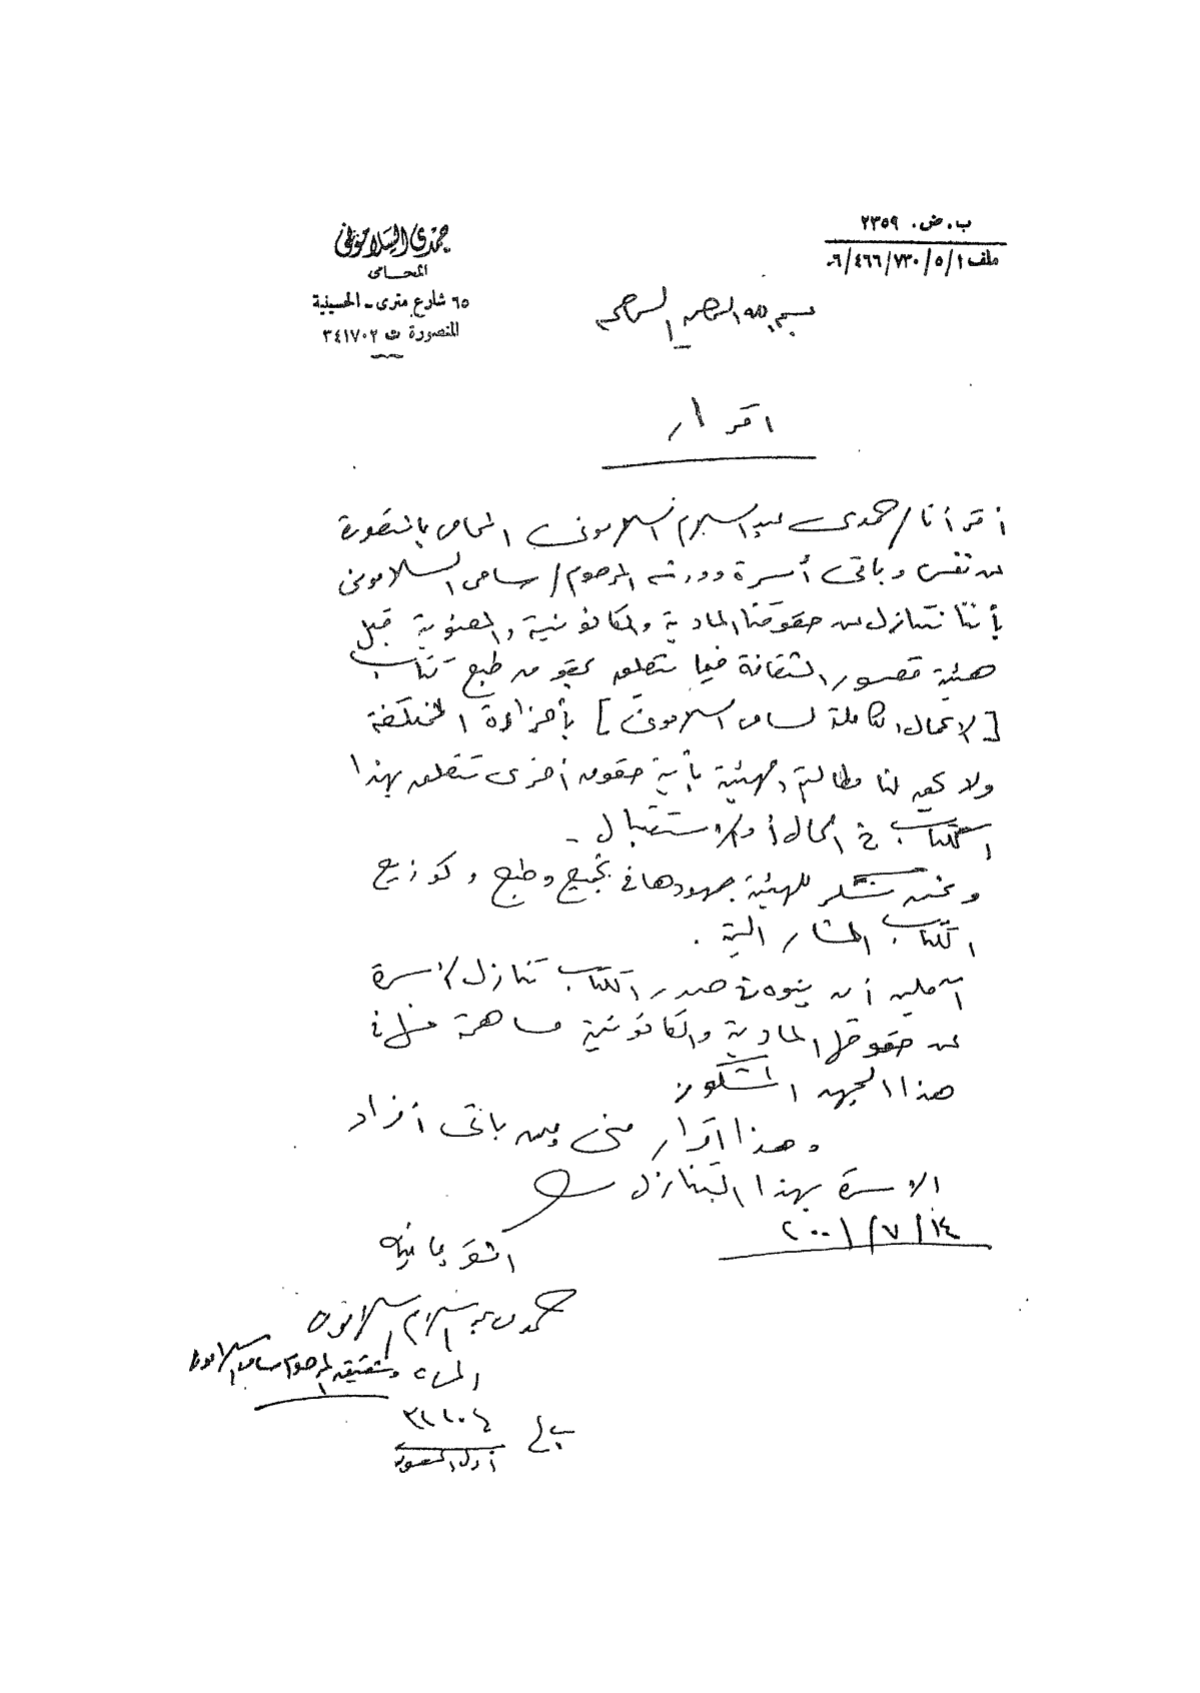 ب . ض . ٢٣٥٩
ملف ٠٦/٤٦٦/٧٣٠/٥/١
حمدى السلامونى
المحامى
٦٥ شارع مترى - الحسينية
المنصورة ت ٣٤١٧٠٢
بسم الله الرحمن الرحيم
اقرار
أقر أنا / حمدى عبد السلام السلامونى المحامى بالمنصورة
عن نفسى وباقى أسرة وورثة المرحوم / سامى السلامونى
بأننا نتنازل عن حقوقنا المادية والقانونية والمعنوية قبل
هيئة قصور الثقافة فيما يتعلق بحقوق طبع كتاب
[ الاعمال الكاملة لسامى السلامونى ] بأجزاءه المختلفة
ولا يحق لنا مطالبة الهيئة بأية حقوق أخرى تتعلق بهذا
الكتاب فى الحال أو الاستقبال -
ونحن نشكر للهيئة جهودها فى تجميع وطبع وتوزيع
الكتاب المشار اليه .
آملين أن ينوه فى صدر الكتاب تنازل الأسرة
عن حقوقها المادية والقانونية مساهمة منها فى
هذا الجهد المشكور
وهذا اقرار منى ومن باقى أفراد
الاسرة بهذا التنازل
١٤/٧/٢٠٠١
المقر بما فيه
حمدى عبد السلام السلامونى
المحامى وشقيق المرحوم سامى السلامونى
أول المنصورة